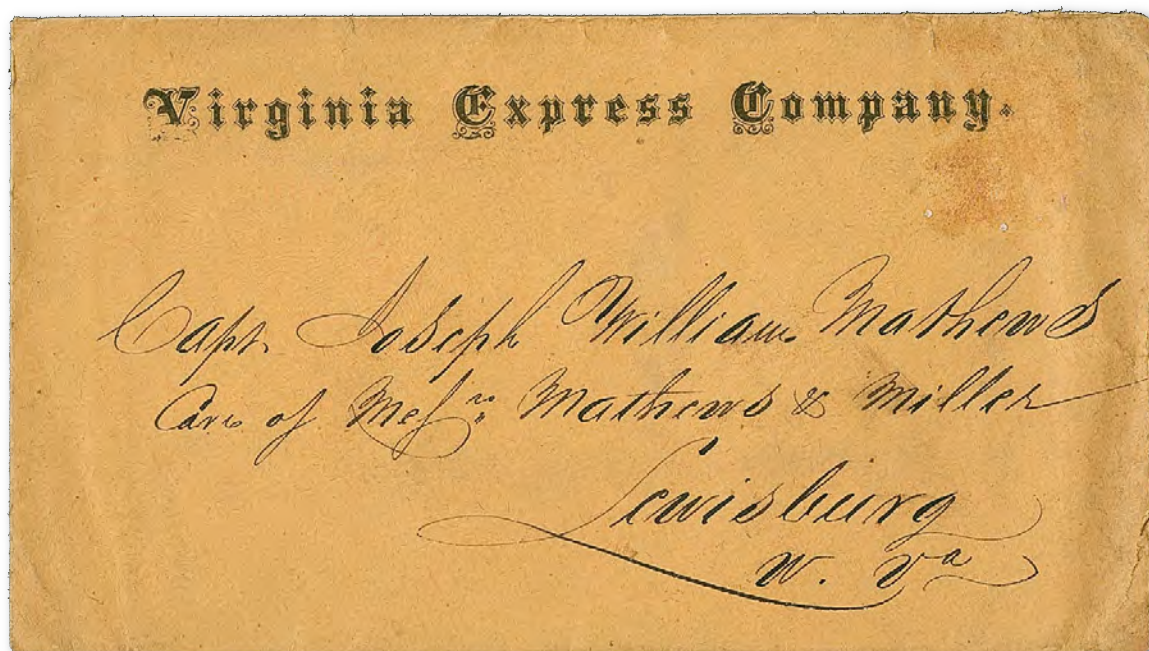 Virginia Express Company.
Capt. Joseph William Mathews
Care of Mesrs Mathews & Miller
Lewisburg
W. Va